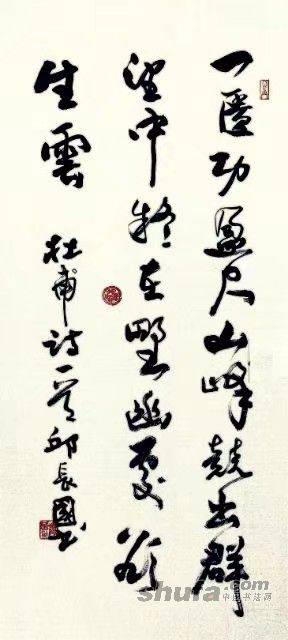 一匱功盈尺山峰競出群
望中疑在野幽處欲
生雲
杜甫诗一首邱長國书
shufa.com
中国书法网